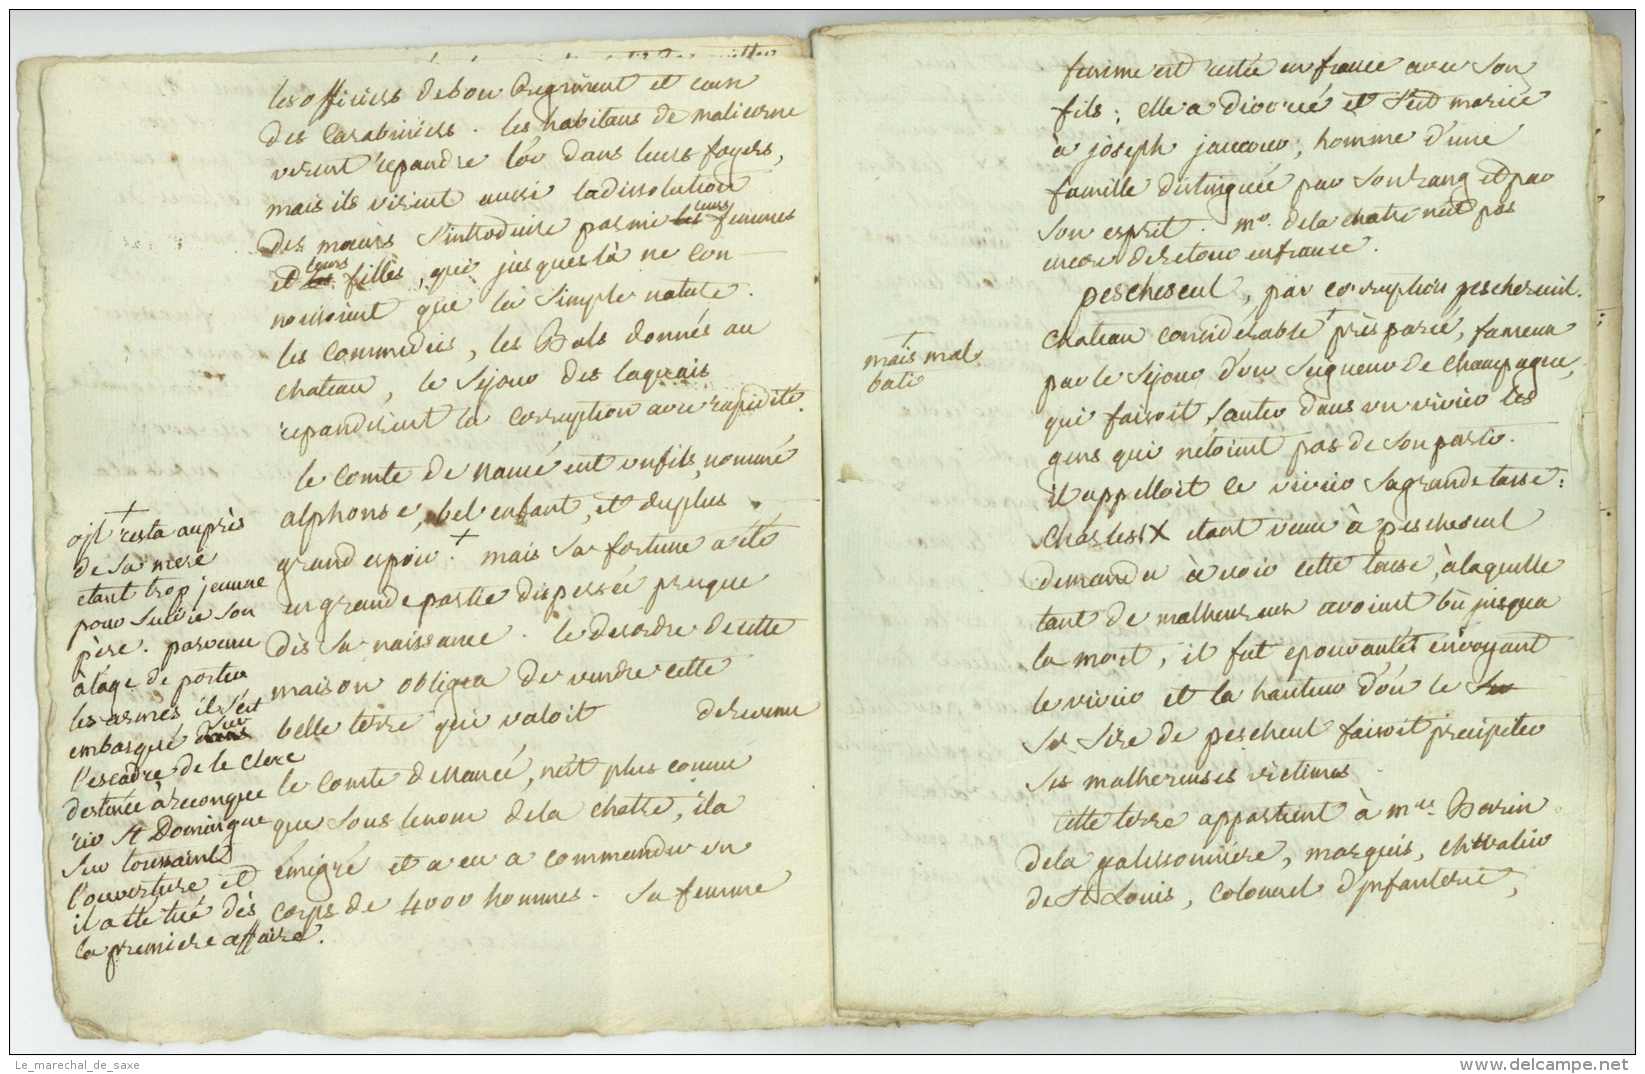 les officiers de son Regiment et ceux
des Carabiniers. les habitans de malicorne
virent repandre l'or dans leurs foyers,
mais ils virent aussi la dissolution
des mœurs s'introduire parmi les leurs femmes
et les leurs filles, qui jusques là ne con-
noissoient que la simple nature.
les Commedies, les Bals donnés au
chateau, le sejour des laquais
repandirent la corruption avec rapidité.
le Comte de Nancé eut un fils, nommé
alphonse, bel enfant, et du plus
grand espoir. + mais sa fortune a été
en grande partie dispersée presque
dès sa naissance. le desordre de cette
maison obligea de vendre cette
belle terre qui valoit de revenu
le Comte de Nancé, n'est plus connu
que sous le nom de la chatre, il a
émigré et a eu a commander un
corps de 4000 hommes. sa femme
+
resta auprès
de sa mere
etant trop jeune
pour suivre son
père. parvenu
à l'âge de porter
les armes il s'est
embarqué dans sur
l'escadre de le Clerc
destinée à reconque
rir St Domingue
sur toussaint
l'ouverture et
il a ete tué dès
la premiere affaire.
femme est restée en france avec son
fils; elle a divorcé et s'est mariée
à joseph jaucour, homme d'une
famille distinguée par son rang et par
son esprit. mr. de la chatre n'est pas
encore de retour en france.
pescheseul, par corruption pescheruil.
chateau considerable + près parcé, fameux
par le sejour d'un seigneur de Champagne,
qui faisoit sauter dans un vivier les
gens qui n'etoient pas de son parti.
il appelloit ce vivier sa grande tasse:
Charles IX etant venu à pescheseul
demanda à voir cette tasse, à laquelle
tant de malheureux avoient bu jusqu'a
la mort, il fut epouvanté en voyant
le vivier et la hauteur d'où le
sire de pescheul faisoit precipiter
ses malheureuses victimes.
cette terre appartient à mrs. Barin
de la galissonniere, marquis, chevalier
de St Louis, colonel d'infanterie,
+
mais mal
bati
Le_marechal_de_saxe
www.delcampe.net